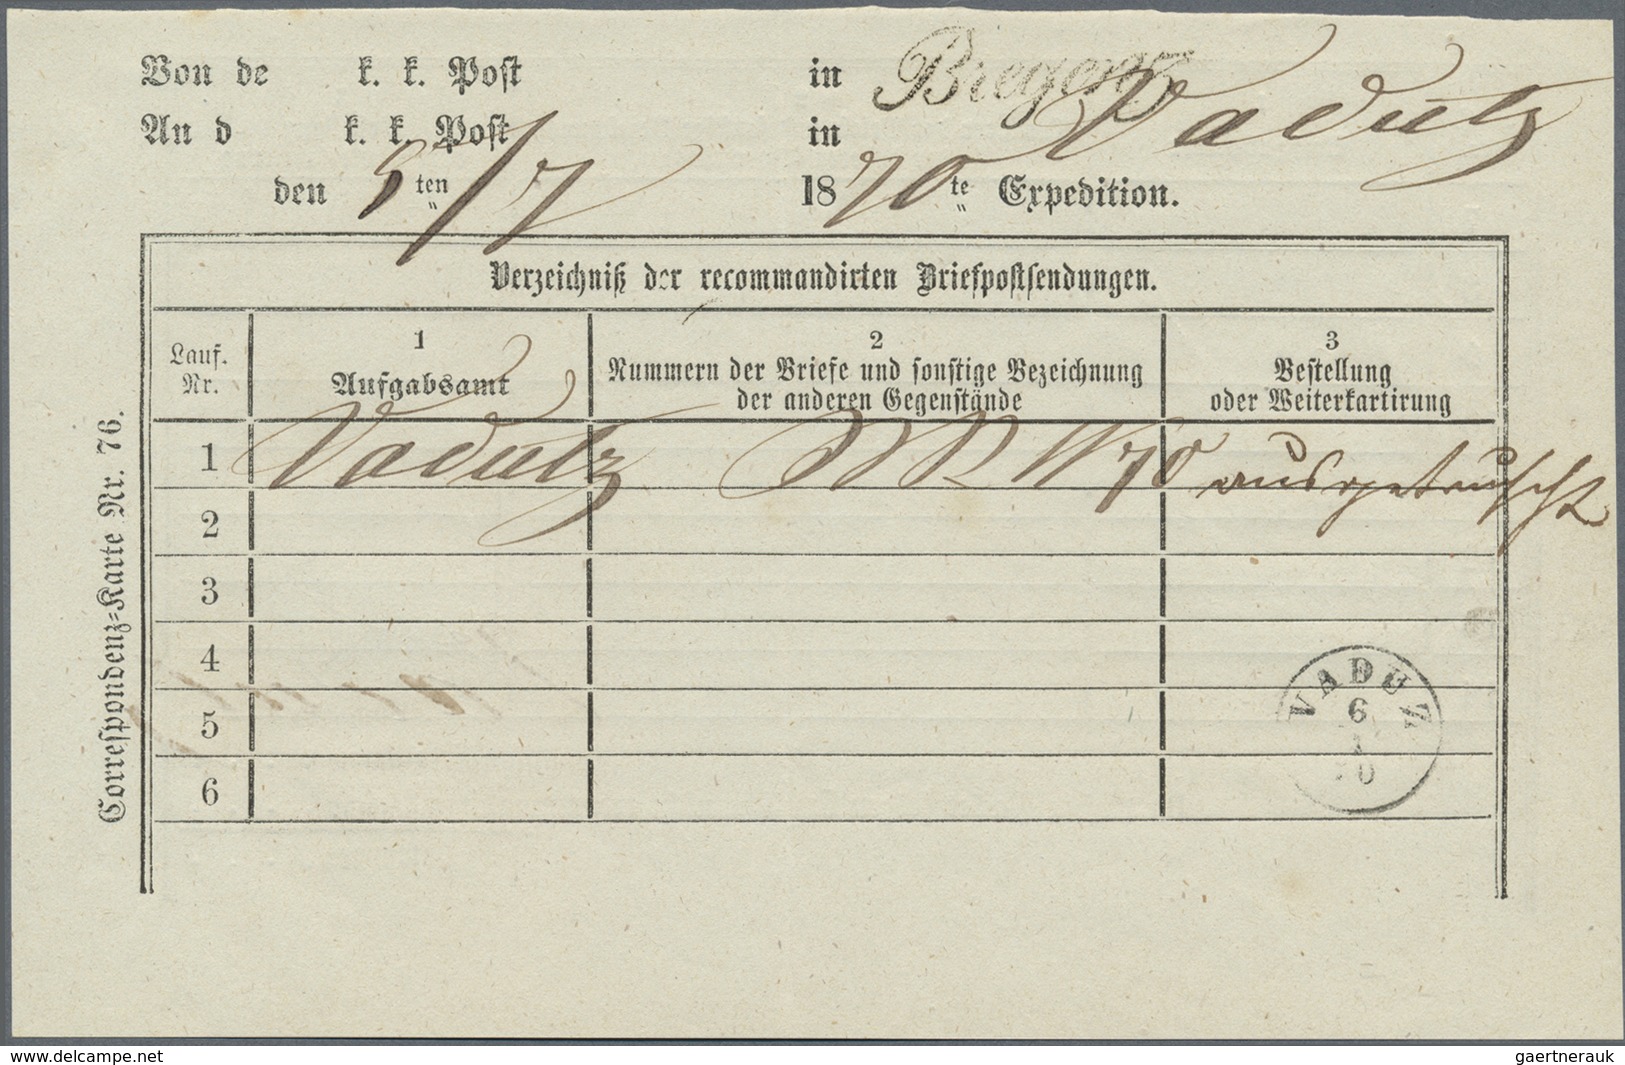 Von de k. k. Post in Bregenz
An d k. k. Post in Vadutz
den 5 ten „ /7 1870 te „ Expedition.
Verzeichniß der recommandirten Briefpostsendungen.
Lauf. Nr.
1 Aufgabsamt
2 Nummern der Briefe und sonstige Bezeichnung der anderen Gegenstände
3 Bestellung oder Weiterkartirung
1 Vadutz
2
3
4
5
6
Correspondenz-Karte Nr. 76.
VADUZ
6
www.delcampe.net
gaertnerauk